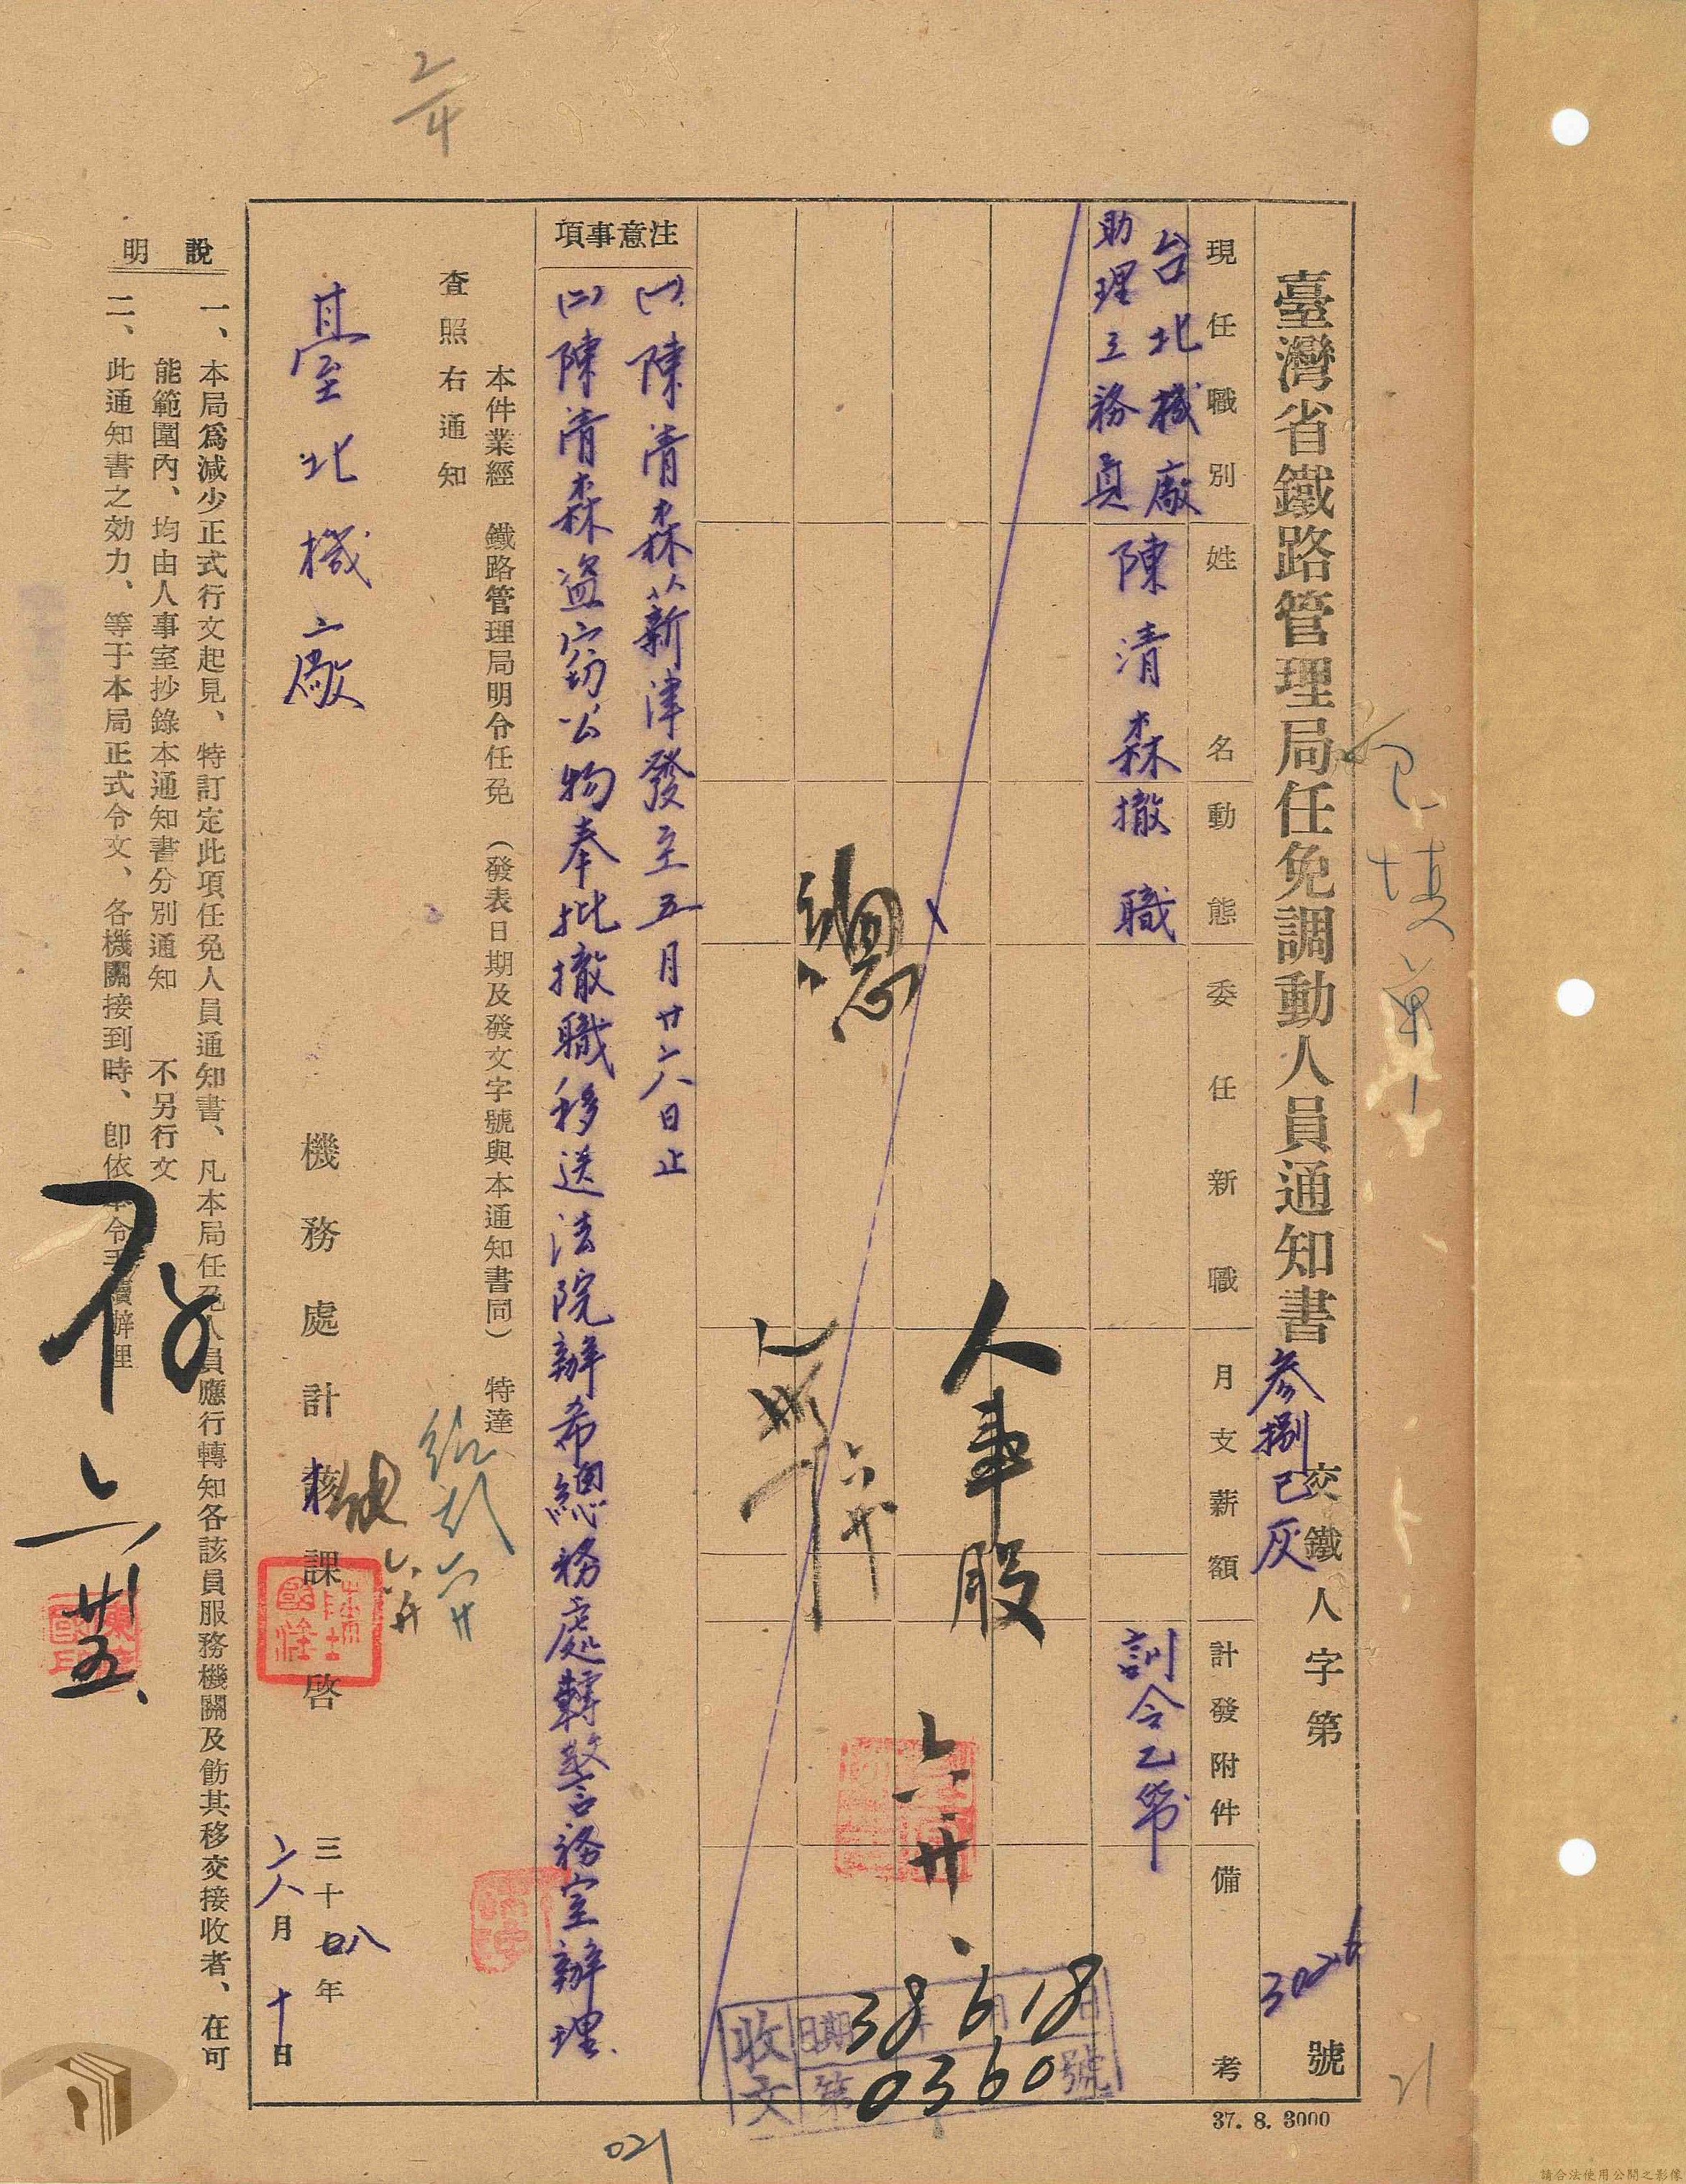 臺灣省鐵路管理局任免調動人員通知書
參捌巳灰交鐵人字第3026號
現任職別
姓名
動態
委任新職
月支薪額
計發附件
備考
台北機廠
助理工務員
陳清森
撤職
訓令乙帋
人事股
總
注意事項
(一)陳清森薪津發至五月廿六日止
(二)陳清森盜竊公物奉批撤職移送法院辦希總務處轉警務室辦理
本件業經 鐵路管理局明令任免 (發表日期及發文字號與本通知書同) 特達
查照右通知
臺北機廠
機務處計核課啓
三十八年六月十日
說明
一、本局爲減少正式行文起見、特訂定此項任免人員通知書、凡本局任免人員應行轉知各該員服務機關及飭其移交接收者、在可
能範圍內、均由人事室抄錄本通知書分別通知 不另行文
二、此通知書之効力、等于本局正式令文、各機關接到時、卽依本令手續辦理
收文
日期38年6月18日
第0360號
存
37. 8. 3000
021
21
請合法使用公開之影像